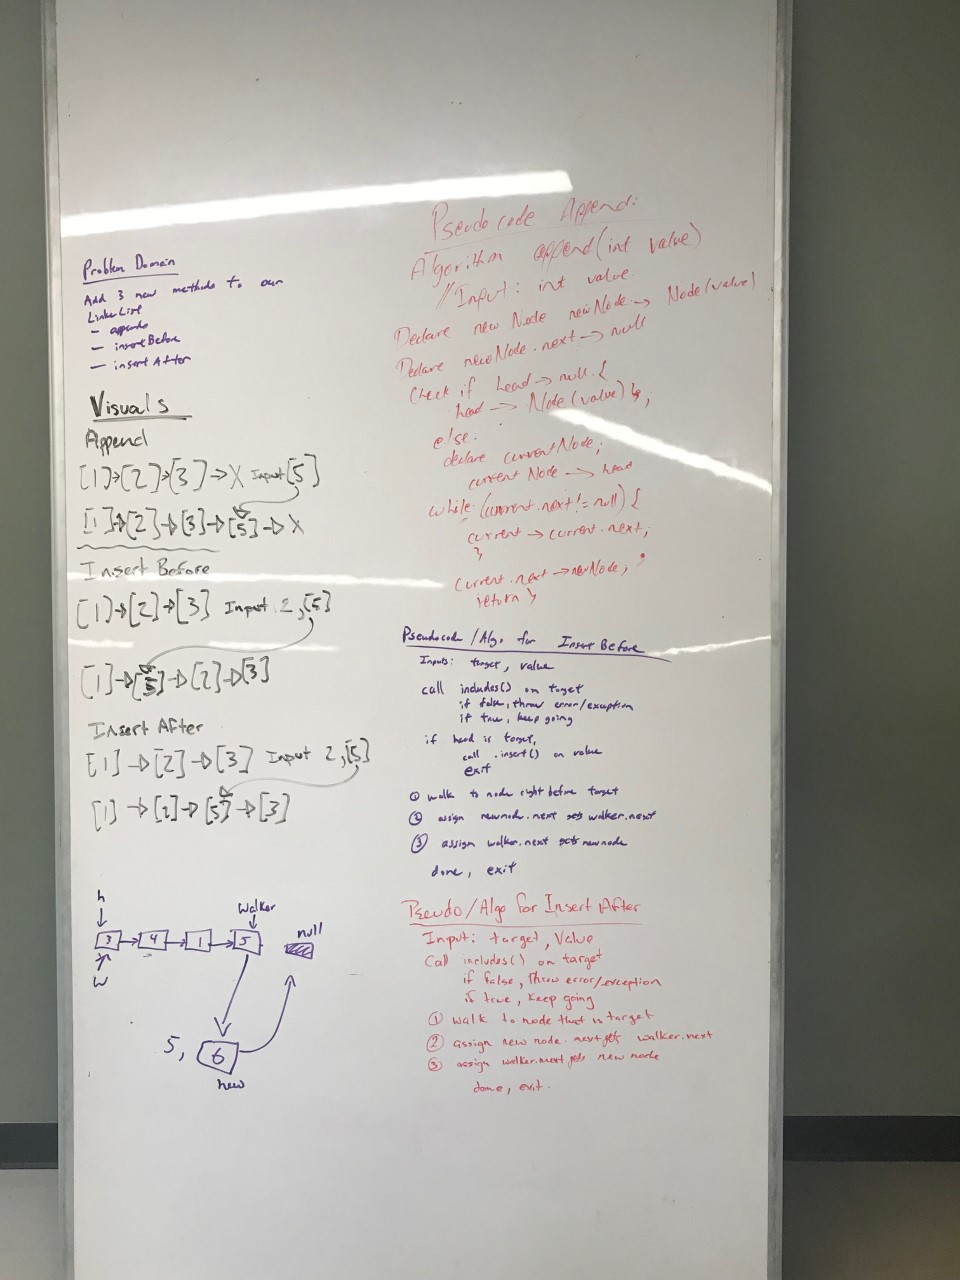 Problem Domain
Add 3 new methods to our
Linke List
- append
- insertBefore
- insert After
Visuals
Append
[1]→[2]→[3]→X Input [5]
[1]→[2]→[3]→[5]→X
Insert Before
[1]→[2]→[3] Input 2,[5]
[1]→[5]→[2]→[3]
Insert After
[1]→[2]→[3] Input 2,[5]
[1]→[2]→[5]→[3]
h
walker
null
3 4 1 5
w
5, 6
new
Pseudocode Append:
Algorithm append(int value)
//Input: int value
Declare new Node newNode → Node(value)
Declare newNode.next → null
Check if head → null {
head → Node(value) };
else:
declare currentNode;
current Node → head
while (current.next != null) {
current → current.next;
}
current.next → newNode;
return }
Pseudocode /Algo for Insert Before
Inputs: target, value
call includes() on target
if false, throw error/exception
if true, keep going
if head is target,
call .insert() on value
exit
① walk to node right before target
② assign newnode.next gets walker.next
③ assign walker.next gets newnode
done, exit
Pseudo/Algo for Insert After
Input: target, value
Call includes() on target
if false, throw error/exception
if true, keep going
① walk to node that is target
② assign new node.next gets walker.next
③ assign walker.next gets new node
done, exit.